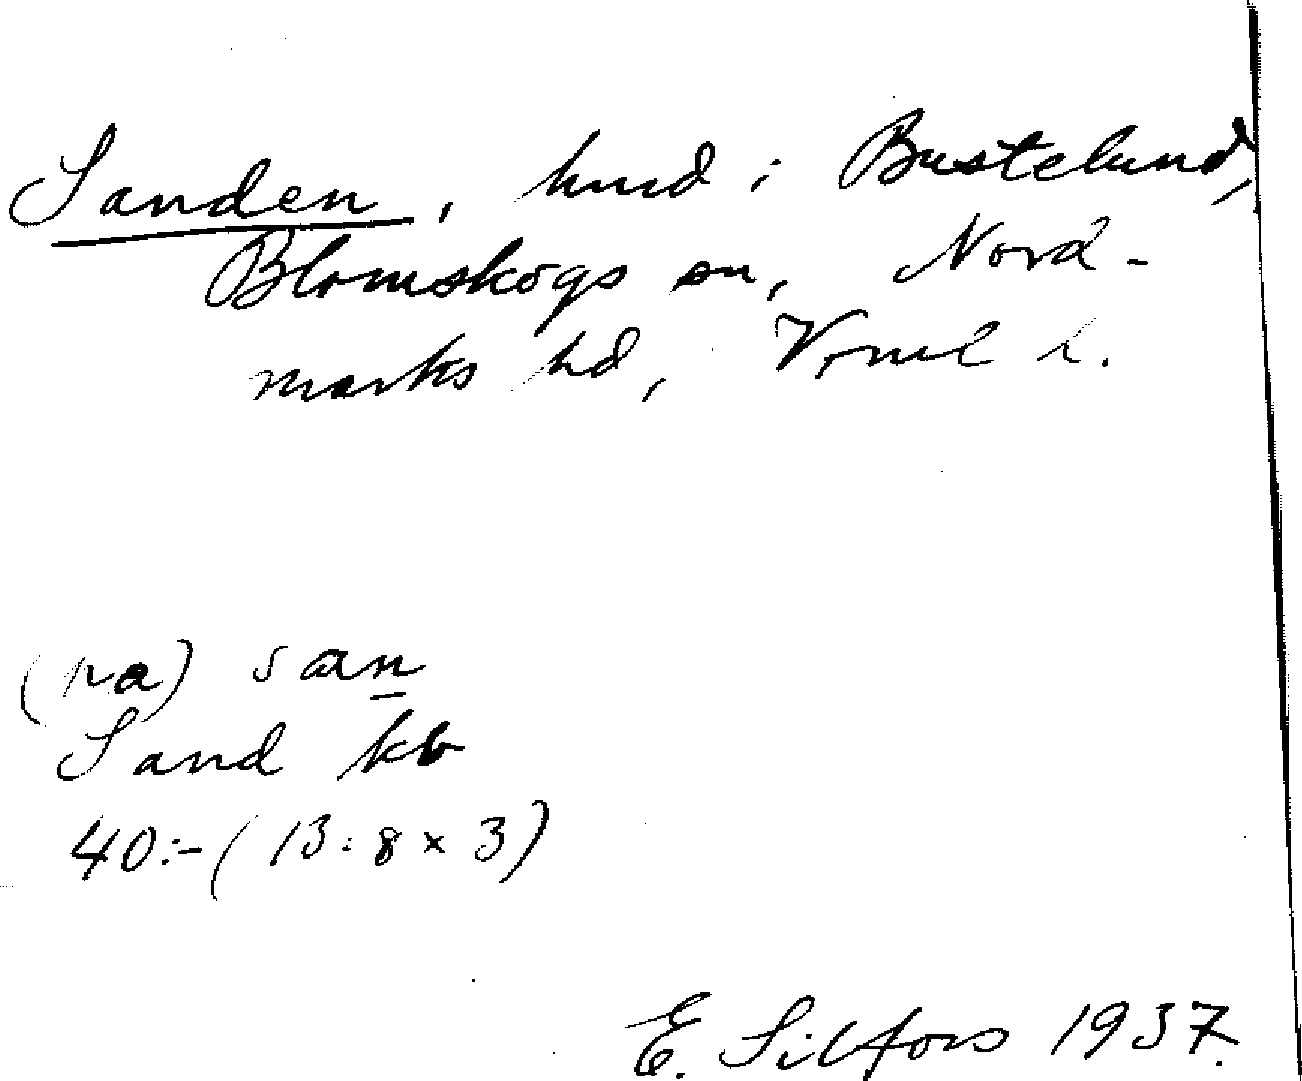 Sanden, hmd i Bustelund,
Blomskogs sn, Nord-
marks hd, Vrml l.
(på) san
Sand kb
40:-(13:8 x 3)
E. Silfors 1937.